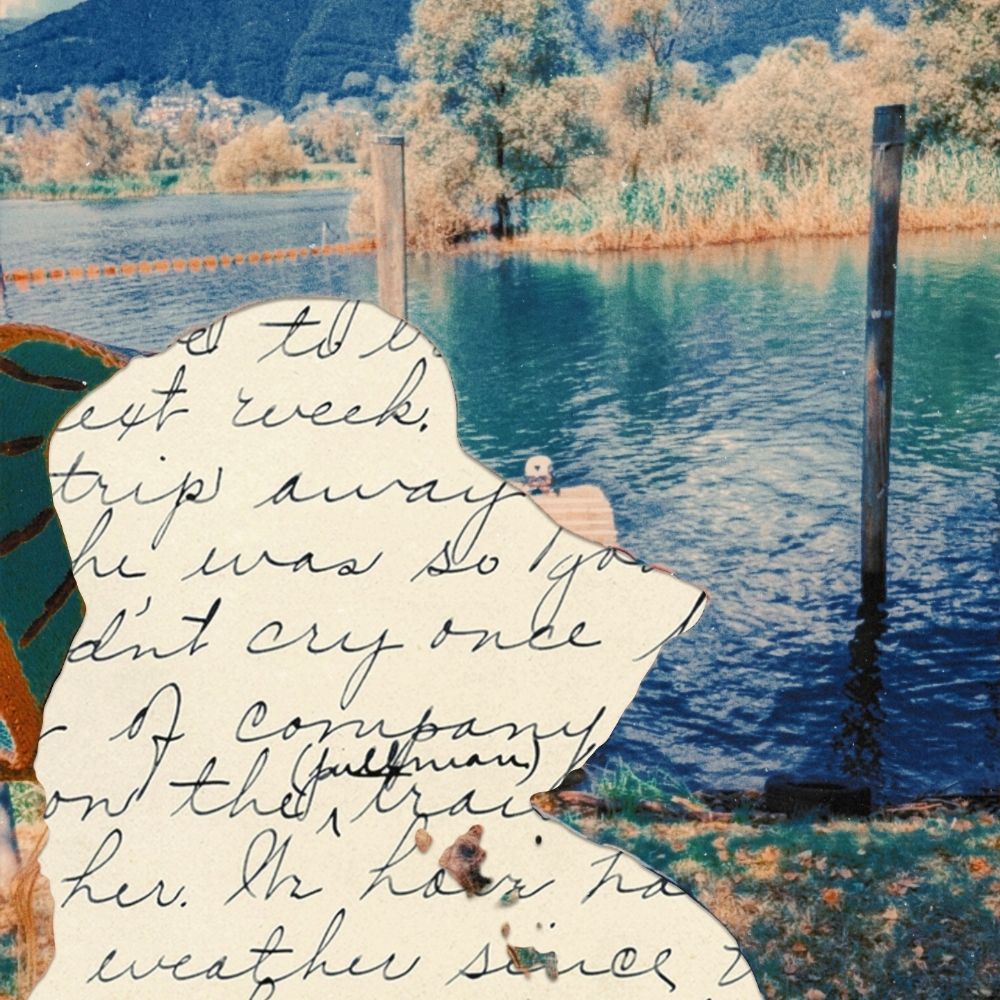 to
ext week.
trip away
he was so
dn't cry once
of company
(pullman)
on the ‸ trai
her. We have ha
weather since